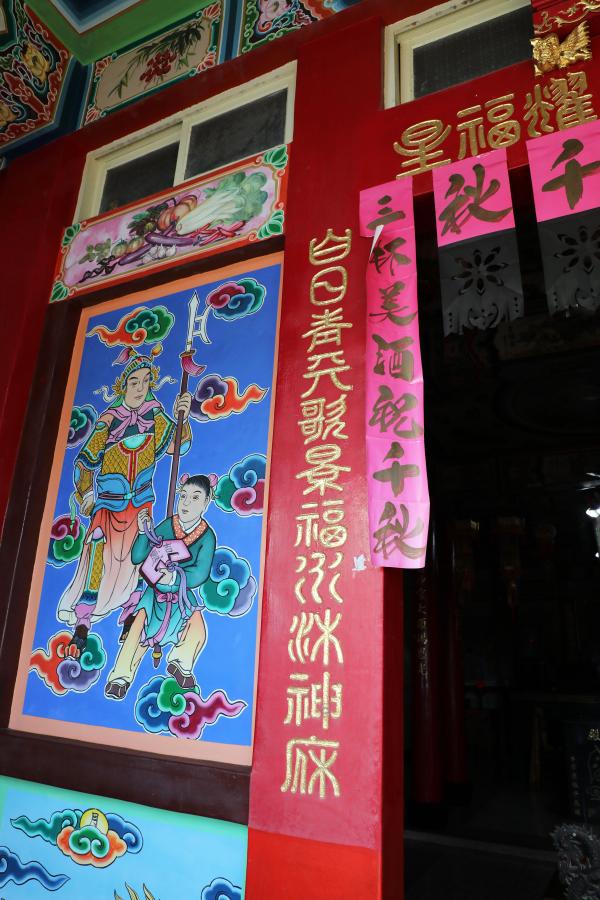 耀福星
千秋
三杯美酒祝千秋
白日青天歌景福永沐神庥